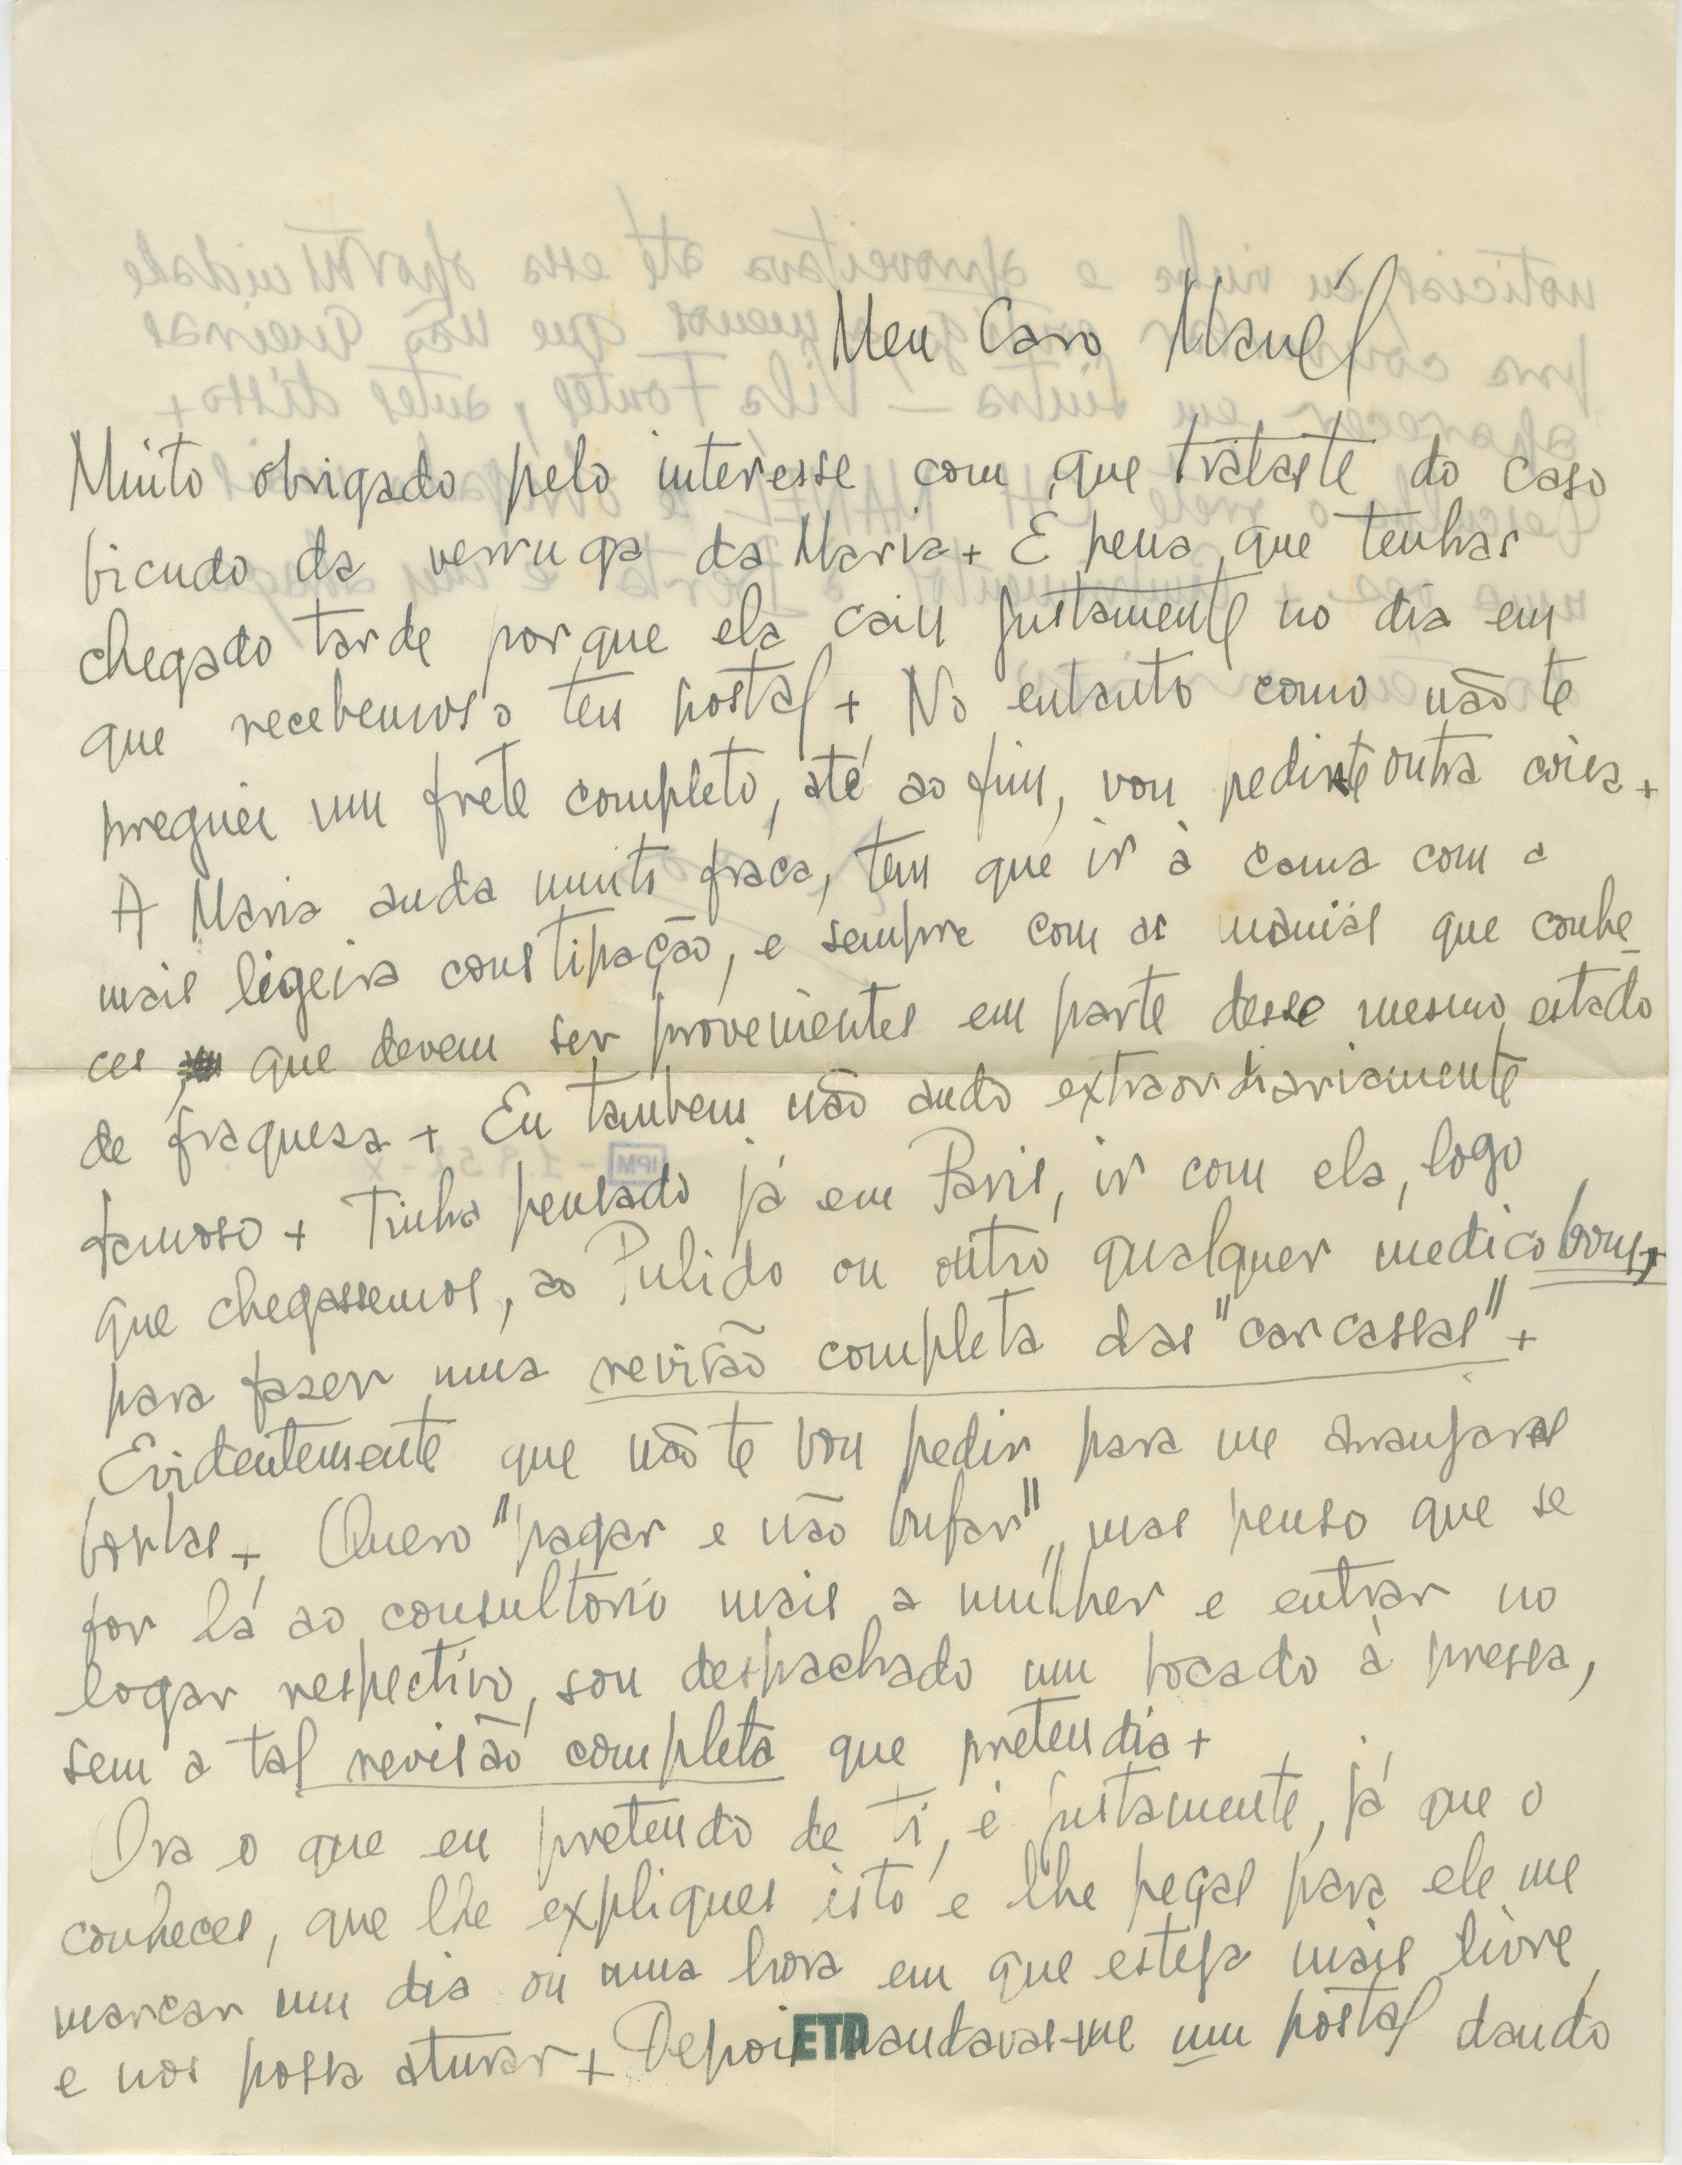 Meu Caro Manél
Muito obrigado pelo interesse com que trataste do caso
bicudo da verruga da Maria + É pena que tenhas
chegado tarde porque ela caiu justamente no dia em
que recebemos o teu postal + No entanto como não te
preguei um frete completo, até ao fim, vou pedir-te outra coisa +
A Maria anda muito fraca, tem que ir à cama com a
mais ligeira constipação, e sempre com as manias que conhe-
ces que devem ser provenientes em parte desse mesmo estado
de fraquesa + Eu tambem não ando extraordiariamente
famoso + Tinha pensado já em Paris, ir com ela, logo
que chegassemos, ao Pulido ou outro qualquer medico bom,
para fazer uma revisão completa das "carcassas" +
Evidentemente que não te vou pedir para me arranjares
borlas + Quero "pagar e não bufar", mas penso que se
for lá ao consultorio mais a mulher e entrar no
logar respectivo, sou despachado um bocado à pressa,
sem a tal revisão completa que pretendia +
Ora o que eu pretendo de ti, é justamente, já que o
conheces, que lhe expliques isto e lhe peças para ele me
marcar um dia ou uma hora em que esteja mais livre
e nos possa aturar + Depois mandavas-me um postal dando
ETP
noticias eu vinha e aproveitava até essa oportunidade
Sintra — Vila Fontes, antes disso +
IPM - 1951-X